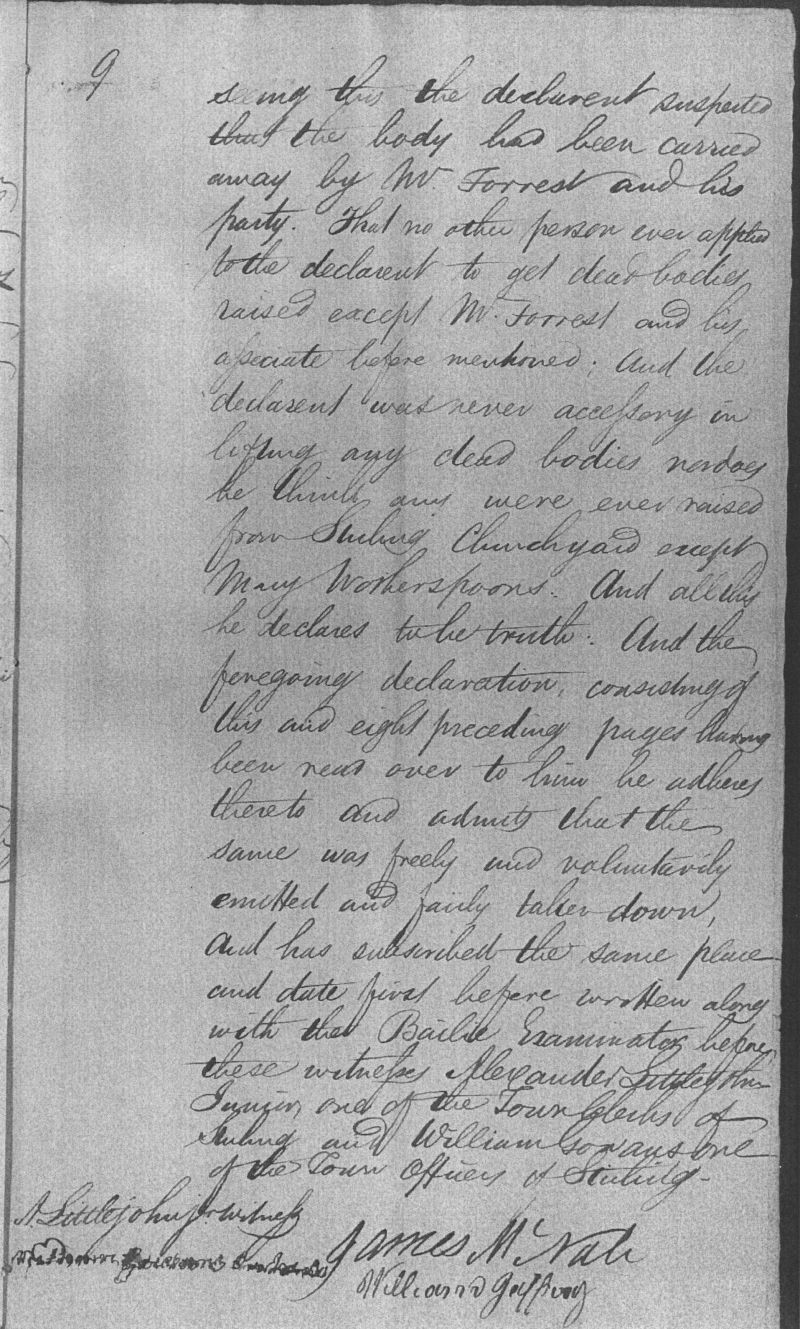 9
seeing this the declarent suspected
that the body had been carried
away by Mr Forrest and his
party. That no other person ever applied
to the declarent to get dead bodies
raised except Mr. Forrest and his
associate before mentioned; And the
declarent was never accessory in
lifting any dead bodies nor does
he think any were ever raised
from Stirling Churchyard except
Mary Wotherspoons. And all this
he declares to be truth. And the
foregoing declaration, consisting of
this and eight preceding pages having
been read over to him he adheres
thereto and admits that the
same was freely and voluntarily
emitted and fairly taken down,
And has subscribed the same place
and date first before written along
with the Bailie Examinator before
these witnesses Alexander Littlejohn
Junior, one of the Town Clerks of
Stirling and William Gowans one
of the Town Officers of Stirling-
A. Littlejohn Jr. witness
James McNab
William Gowans
William